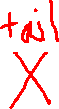 tail
X